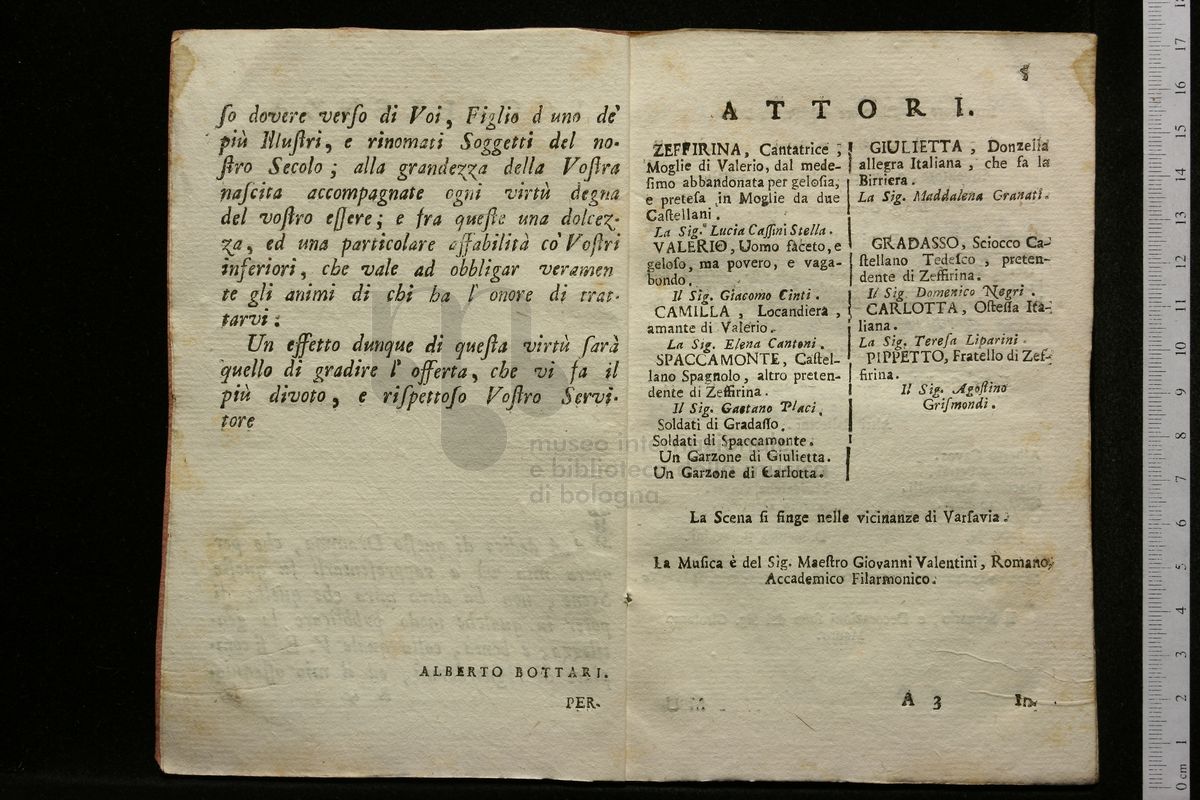 ſo dovere verſo di Voi, Figlio d uno de'
più Illuſtri, e rinomati Soggetti del no-
ſtro Secolo; alla grandezza della Voſtra
naſcita accompagnate ogni virtù degna
del voſtro eſſere; e fra queſte una dolcez-
za, ed una particolare affabilità co' Voſtri
inferiori, che vale ad obbligar veramen
te gli animi di chi ha l' onore di trat-
tarvi:
Un effetto dunque di queſta virtù ſarà
quello di gradire l' offerta, che vi fa il
più divoto, e riſpettoſo Voſtro Servi-
tore
ALBERTO BOTTARI.
PER-
5
ATTORI.
ZEFFIRINA, Cantatrice;
Moglie di Valerio, dal mede-
ſimo abbandonata per geloſia,
e preteſa in Moglie da due
Caſtellani.
La Sig. Lucia Caſſini Stella.
VALERIO, Uomo faceto, e
geloſo, ma povero, e vaga-
bondo.
Il Sig. Giacomo Cinti.
CAMILLA, Locandiera,
amante di Valerio.
La Sig. Elena Cantoni.
SPACCAMONTE, Caſtel-
lano Spagnolo, altro preten-
dente di Zeffirina.
Il Sig. Gaetano Placi.
Soldati di Gradaſſo.
Soldati di Spaccamonte.
Un Garzone di Giulietta.
Un Garzone di Carlotta.
GIULIETTA, Donzella
allegra Italiana, che fa la
Birriera.
La Sig. Maddalena Granati.
GRADASSO, Sciocco Ca-
ſtellano Tedeſco, preten-
dente di Zeffirina.
Il Sig. Domenico Negri.
CARLOTTA, Oſteſſa Ita-
liana.
La Sig. Tereſa Liparini.
PIPPETTO, Fratello di Zef-
firina.
Il Sig. Agoſtino
Griſmondi.
La Scena ſi finge nelle vicinanze di Varſavia.
La Muſica è del Sig. Maeſtro Giovanni Valentini, Romano,
Accademico Filarmonico.
A 3
In-
museo inte
e bibliotec
di bologna
0 cm 1 2 3 4 5 6 7 8 9 10 11 12 13 14 15 16 17